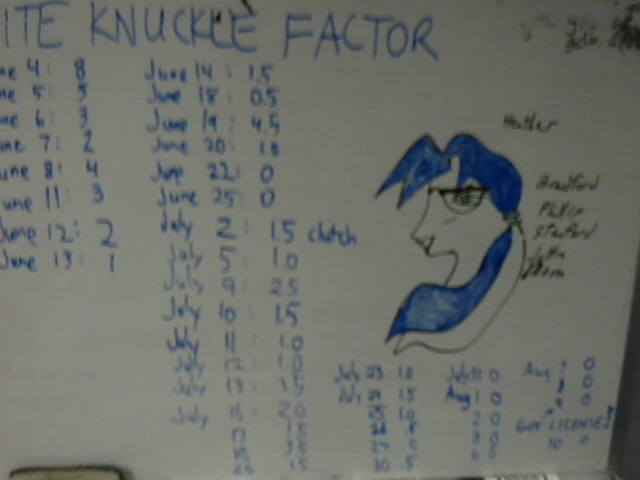 ITE KNUCKLE FACTOR
ne 4: 8
ne 5: 5
ne 6: 3
ne 7: 2
une 8: 4
une 11: 3
June 12: 2
June 13: 1
June 14: 1.5
June 18: 0.5
June 19: 4.5
June 20: 1.0
June 22: 0
June 25: 0
July 2: 1.5 clutch
July 5: 1.0
July 9: 2.5
July 10: 1.5
July 11: 1.0
July 12: 1.0
July 13: 1.5
July 16: 2.0
17 1.5
1.5
Heather
Bradford
Philip
Stanford
July 23 1.0
July 24 1.5
25 1.0
.5
.5
30 .5
July 31 0
Aug 1 0
2 0
3 0
6 0
Aug 7 0
8 0
9 0
GOT LICENSE!
10 0